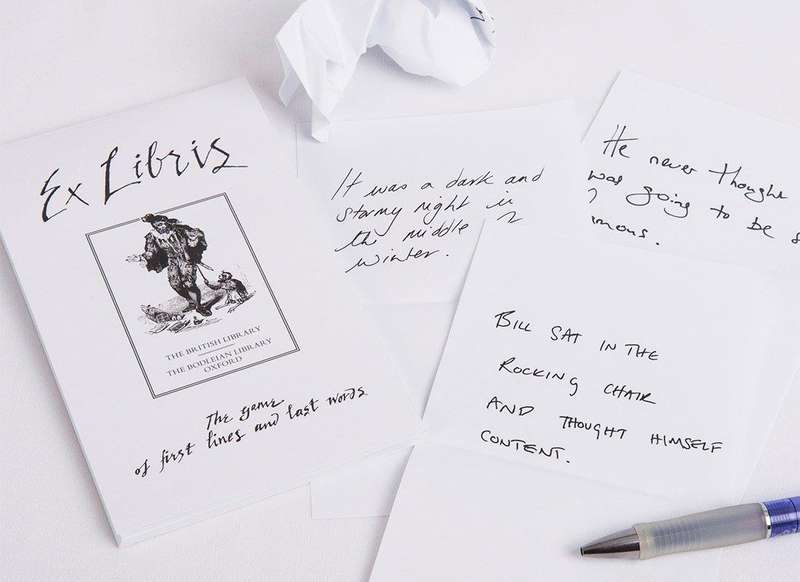 Ex Libris
THE BRITISH LIBRARY
THE BODLEIAN LIBRARY
OXFORD
The game
of first lines and last words
It was a dark and
stormy night in
the middle
winter.
He never thought
was going to be
BILL SAT IN THE
ROCKING CHAIR
AND THOUGHT HIMSELF
CONTENT.